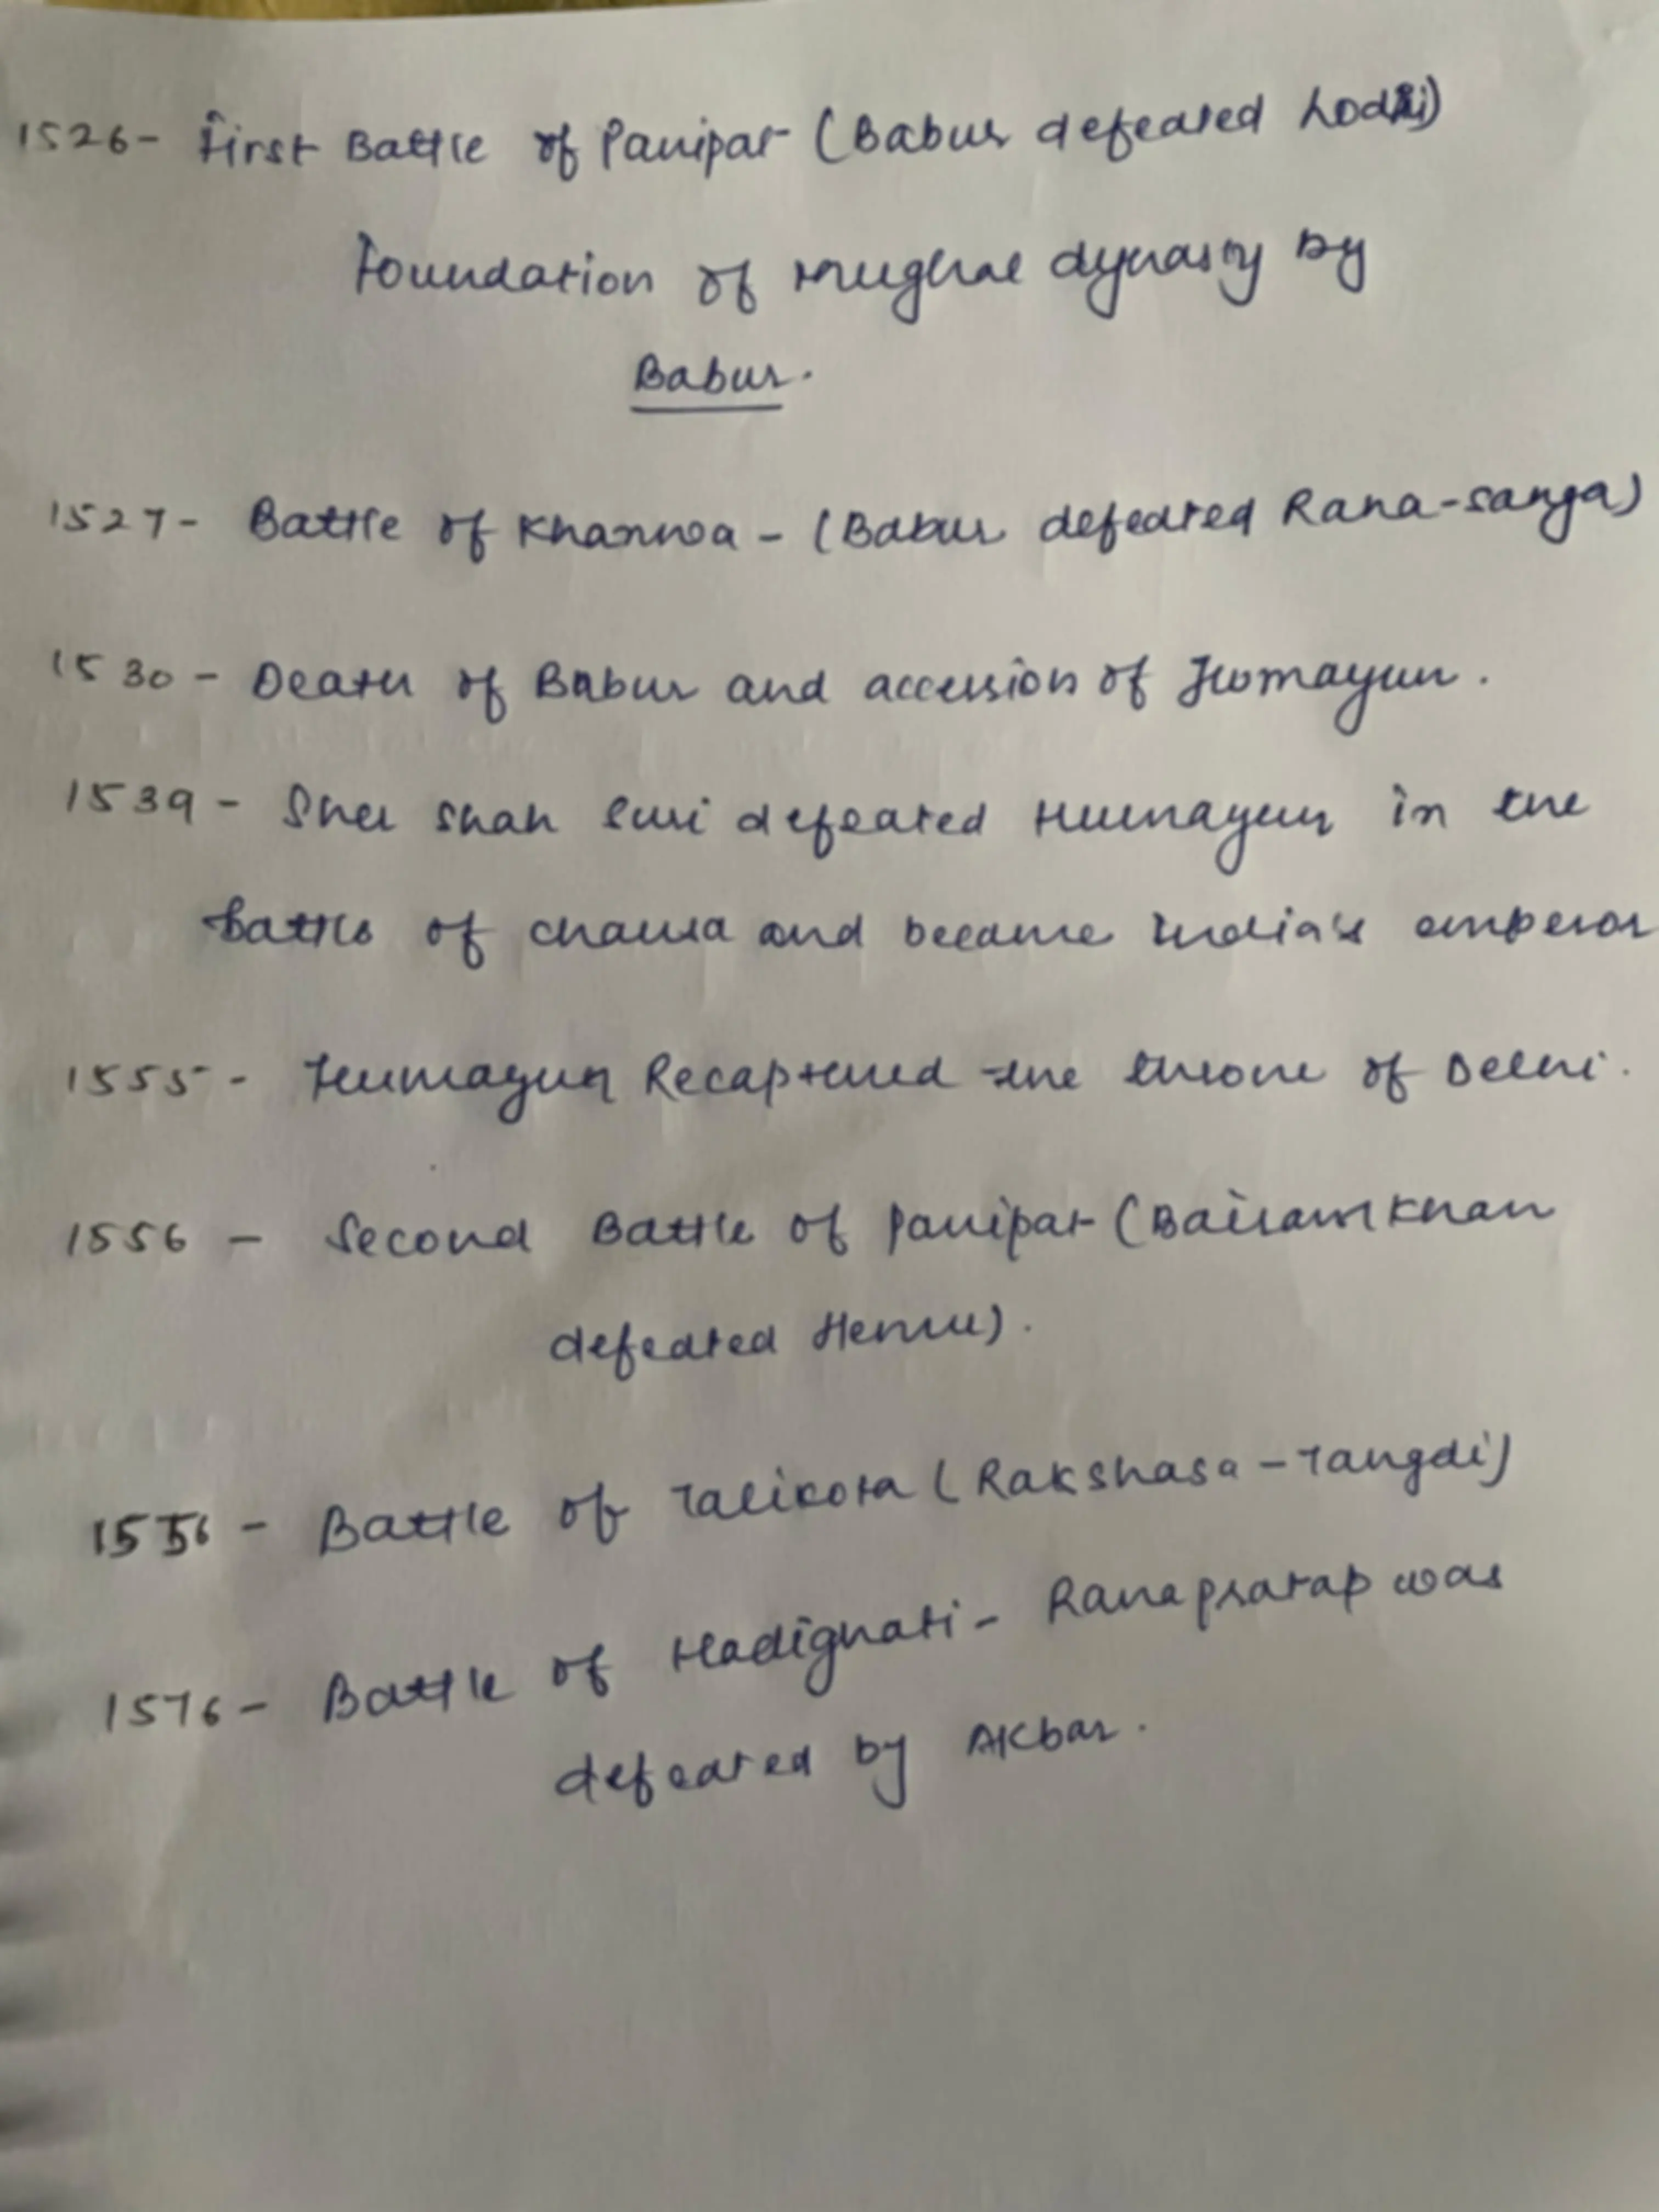 1526- First Battle of Panipat (Babur defeated Lodhi)
Foundation of Mughal dynasty by
Babur.
1527- Battle of Khanwa - (Babur defeated Rana-sanga)
1530 - Death of Babur and accession of Humayun.
1539 - Sher Shah Suri defeated Humayun in the
battle of chausa and became India's emperor
1555 - Humayun Recaptured the throne of Delhi.
1556 - Second Battle of Panipat (Bairam Khan
defeated Hemu).
1556 - Battle of Talikota (Rakshasa-Tangdi)
1576- Battle of Hadighati- Rana pratap was
defeated by Akbar.